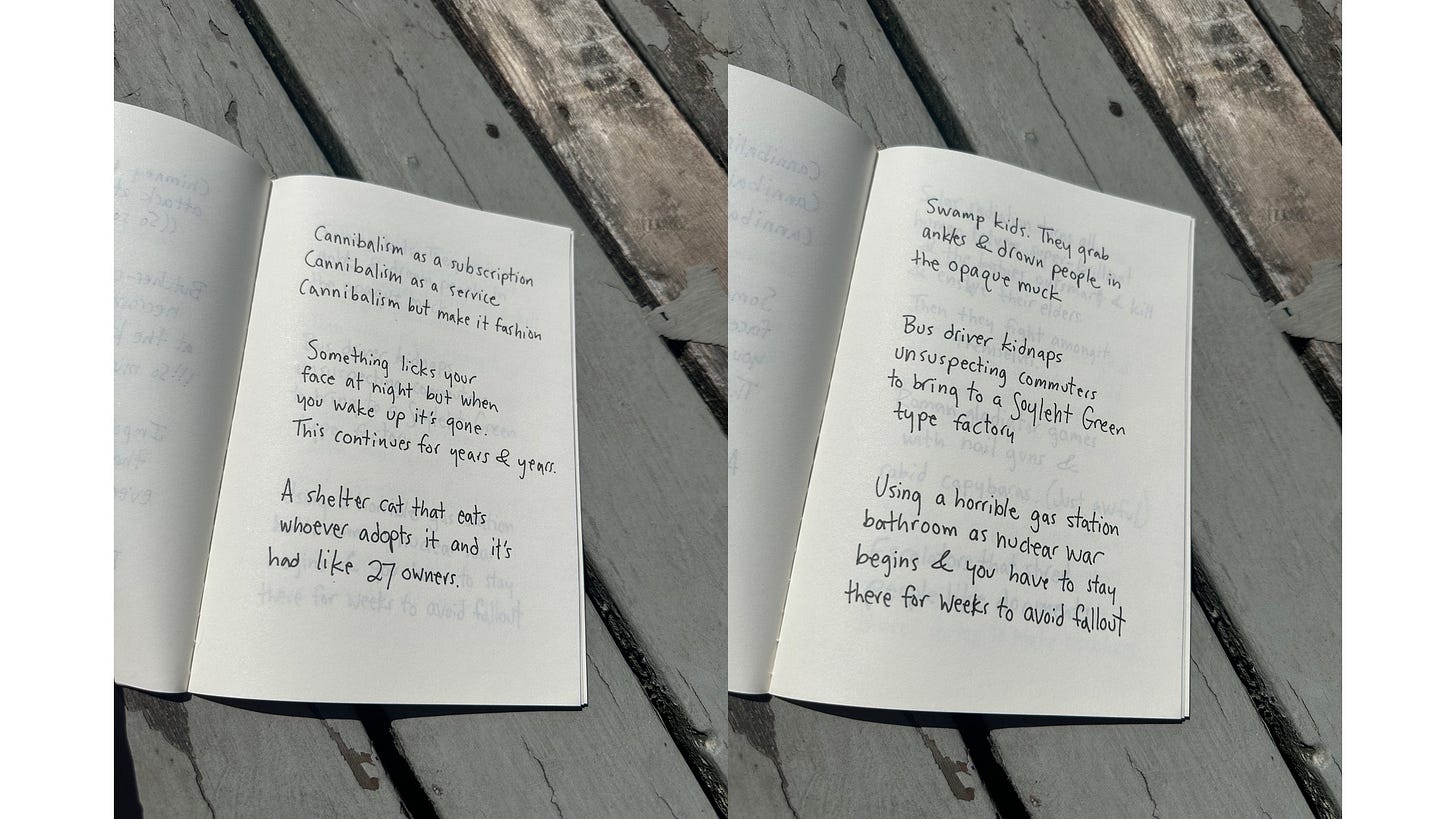 Cannibalism as a subscription
Cannibalism as a service
Cannibalism but make it fashion
Something licks your
face at night but when
you wake up it's gone.
This continues for years & years.
A shelter cat that eats
whoever adopts it and it's
had like 27 owners.
Swamp kids. They grab
ankles & drown people in
the opaque muck
Bus driver kidnaps
unsuspecting commuters
to bring to a Soyleht Green
type factory
Using a horrible gas station
bathroom as nuclear war
begins & you have to stay
there for weeks to avoid fallout